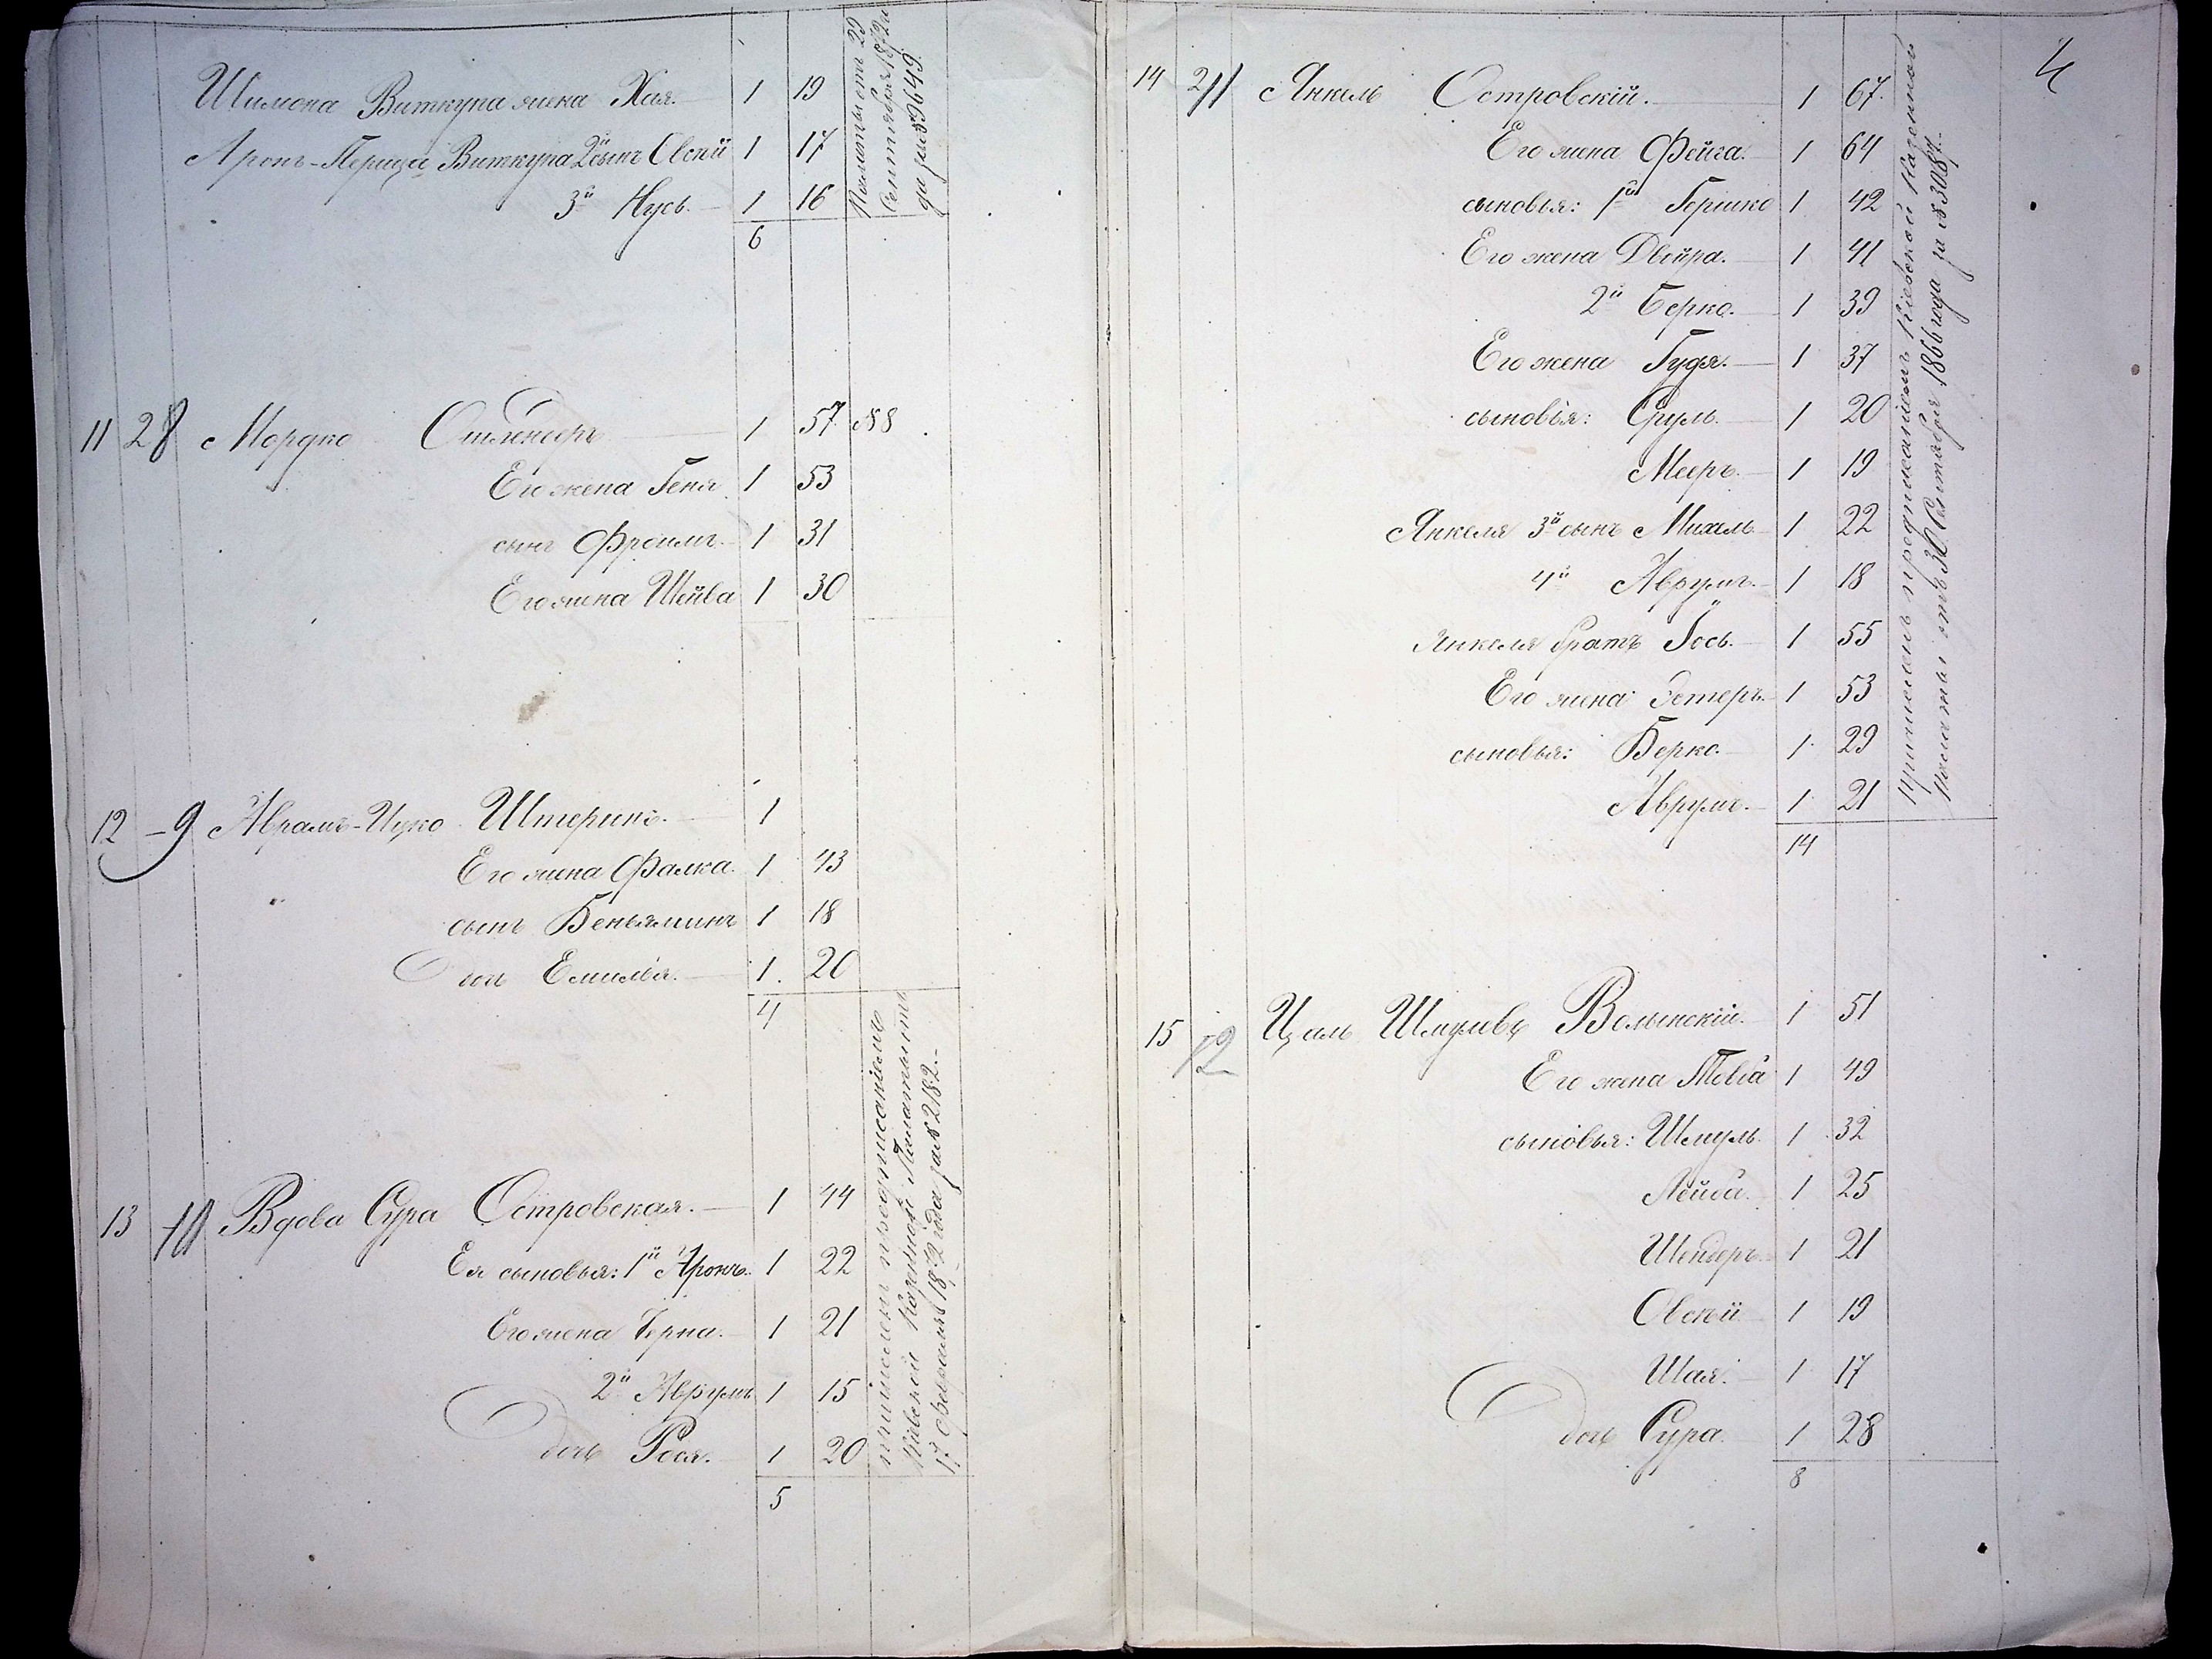 Шимона Виткупа жена Хая. 1 19
Аронъ-Перица Виткупа 2й сынъ Овсей 1 17
3й Нусь. 1 16
6
Палаты отъ 29
Сентября 1872 го
да за № 9649.
11 28 Мордко 1 57 №8
Его жена Геня 1 53
сынъ Фроимъ. 1 31
Его жена Шейва 1 30
12 9 Абрамъ-Ицко Штеринъ. 1
Его жена Фалка. 1 43
сынъ Беньяминъ 1 18
дочь Емилія. 1 20
4
13 10 Вдова Сура Островская. 1 44
Ея сыновья: 1й Аронъ. 1 22
Его жена Черна. 1 21
2й Аврумъ 1 15
дочь Рося. 1 20
5
причисленъ предписаніемъ
Кіевской Казенной Палаты отъ
17 Февраля 1872 года за № 2182.
4
14 11 Янкель Островскій. 1 67.
Его жена Фейга. 1 64
сыновья: 1й Гершко 1 42
Его жена Двейра. 1 41
2й Берко. 1 39
Его жена Гудя. 1 37
сыновья: Сруль. 1 20
Мееръ. 1 19
Янкеля 3й сынъ Михель 1 22
4й Аврумъ. 1 18
Янкеля братъ Іось. 1 55
Его жена Эстеръ. 1 53
сыновья: Берко. 1 29
Аврумъ. 1 21
14
Причисленъ предписаніемъ Кіевской Казенной
Палаты отъ 30 Сентября 1866 года за № 3087.
15 12 Цаль Шмулевъ Волынскій. 1 51
Его жена 1 49
сыновья: Шмуль. 1 32
Лейба. 1 25
Шендеръ. 1 21
Овсей 1 19
Шая. 1 17
дочь Сура. 1 28
8